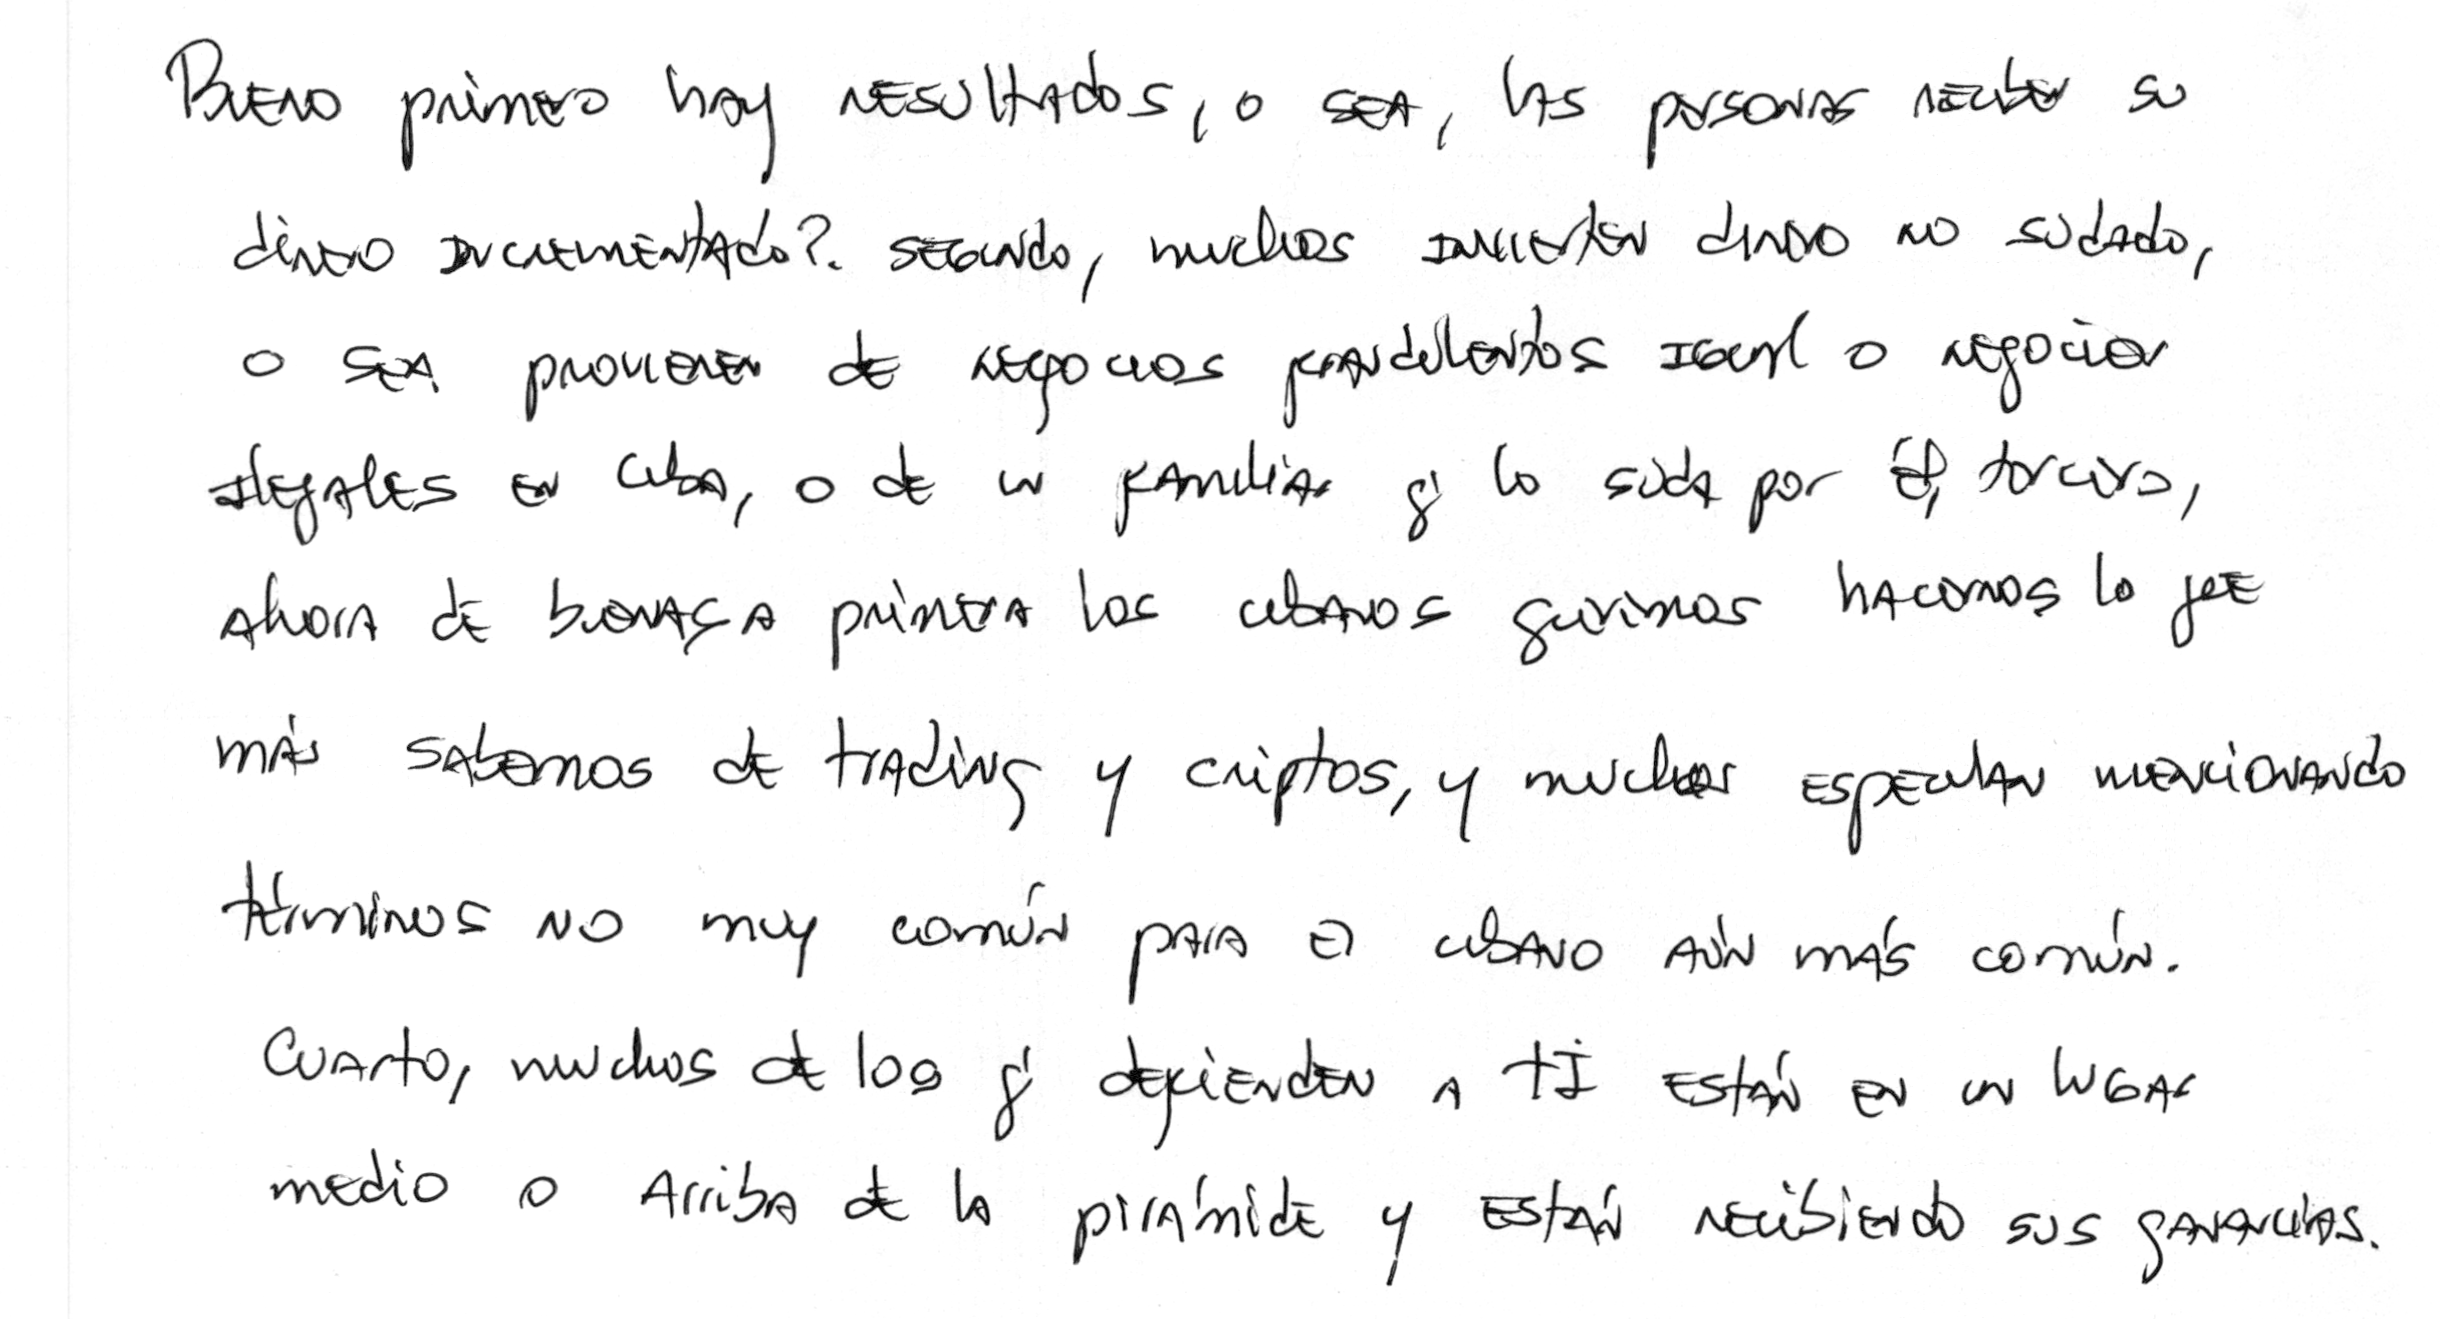 Bueno primero hay resultados, o sea, las personas reciben su
dinero incrementado?. Segundo, muchos invierten dinero no sudado,
o sea provienen de negocios fraudulentos igual o negocios
ilegales en Cuba, o de un familiar q' lo suda por él, tercero,
ahora de buenas a primera los cubanos quisimos hacernos lo que
más sabemos de trading y criptos, y muchos especulan mencionando
términos no muy común para el cubano aún más común.
Cuarto, muchos de los q' defienden a TI están en un lugar
medio o arriba de la pirámide y están recibiendo sus ganancias.